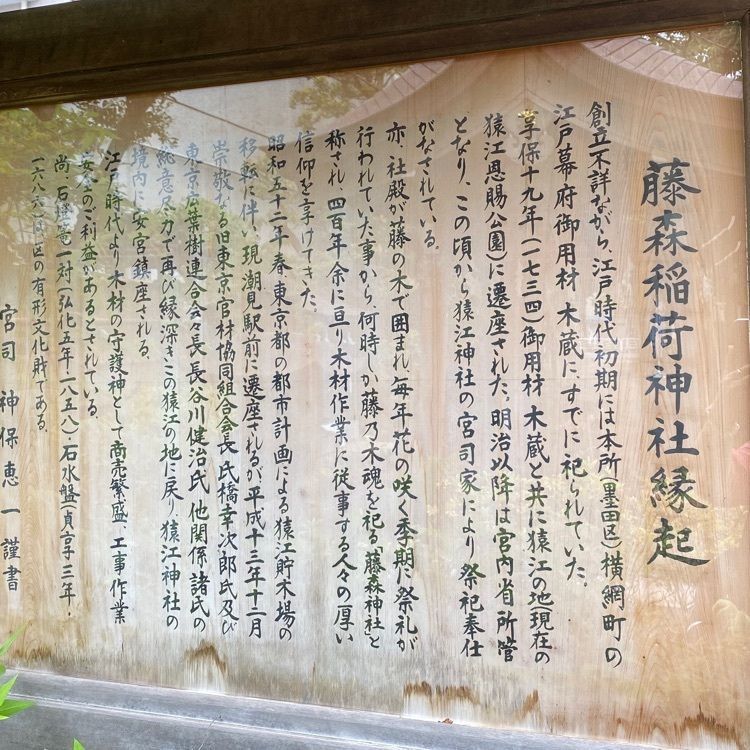 藤森稲荷神社縁起
創立不詳ながら、江戸時代初期には本所(墨田区)横網町の
江戸幕府御用材 木蔵に、すでに祀られていた。
享保十九年(一七三四)御用材 木蔵と共に猿江の地(現在の
猿江恩賜公園)に遷座された。明治以降は宮内省所管
となり、この頃から猿江神社の宮司家により祭祀奉仕
がなされている。
亦、社殿が藤の木で囲まれ、毎年花の咲く季期に祭礼が
行われていた事から、何時しか藤乃木魂を祀る「藤森神社」と
称され、四百年余に亘り木材作業に従事する人々の厚い
信仰を享けてきた。
昭和五十二年春、東京都の都市計画による猿江貯木場の
移転に伴い現潮見駅前に遷座されるが平成十三年十二月
崇敬なる旧東京官材協同組合会長 氏橋幸次郎氏 及び
東京広葉樹連合会々長 長谷川健治氏 他関係諸氏の
総意尽力で再び縁深きこの猿江の地に戻り猿江神社の
境内に安宮鎮座される。
江戸時代より木材の守護神として商売繁盛、工事作業
安全のご利益があるとされている。
尚、石燈篭一対(弘化五年・一八五八)・石水盤(貞享三年・
一六八六)は区の有形文化財である。
宮司 神保恵一 謹書